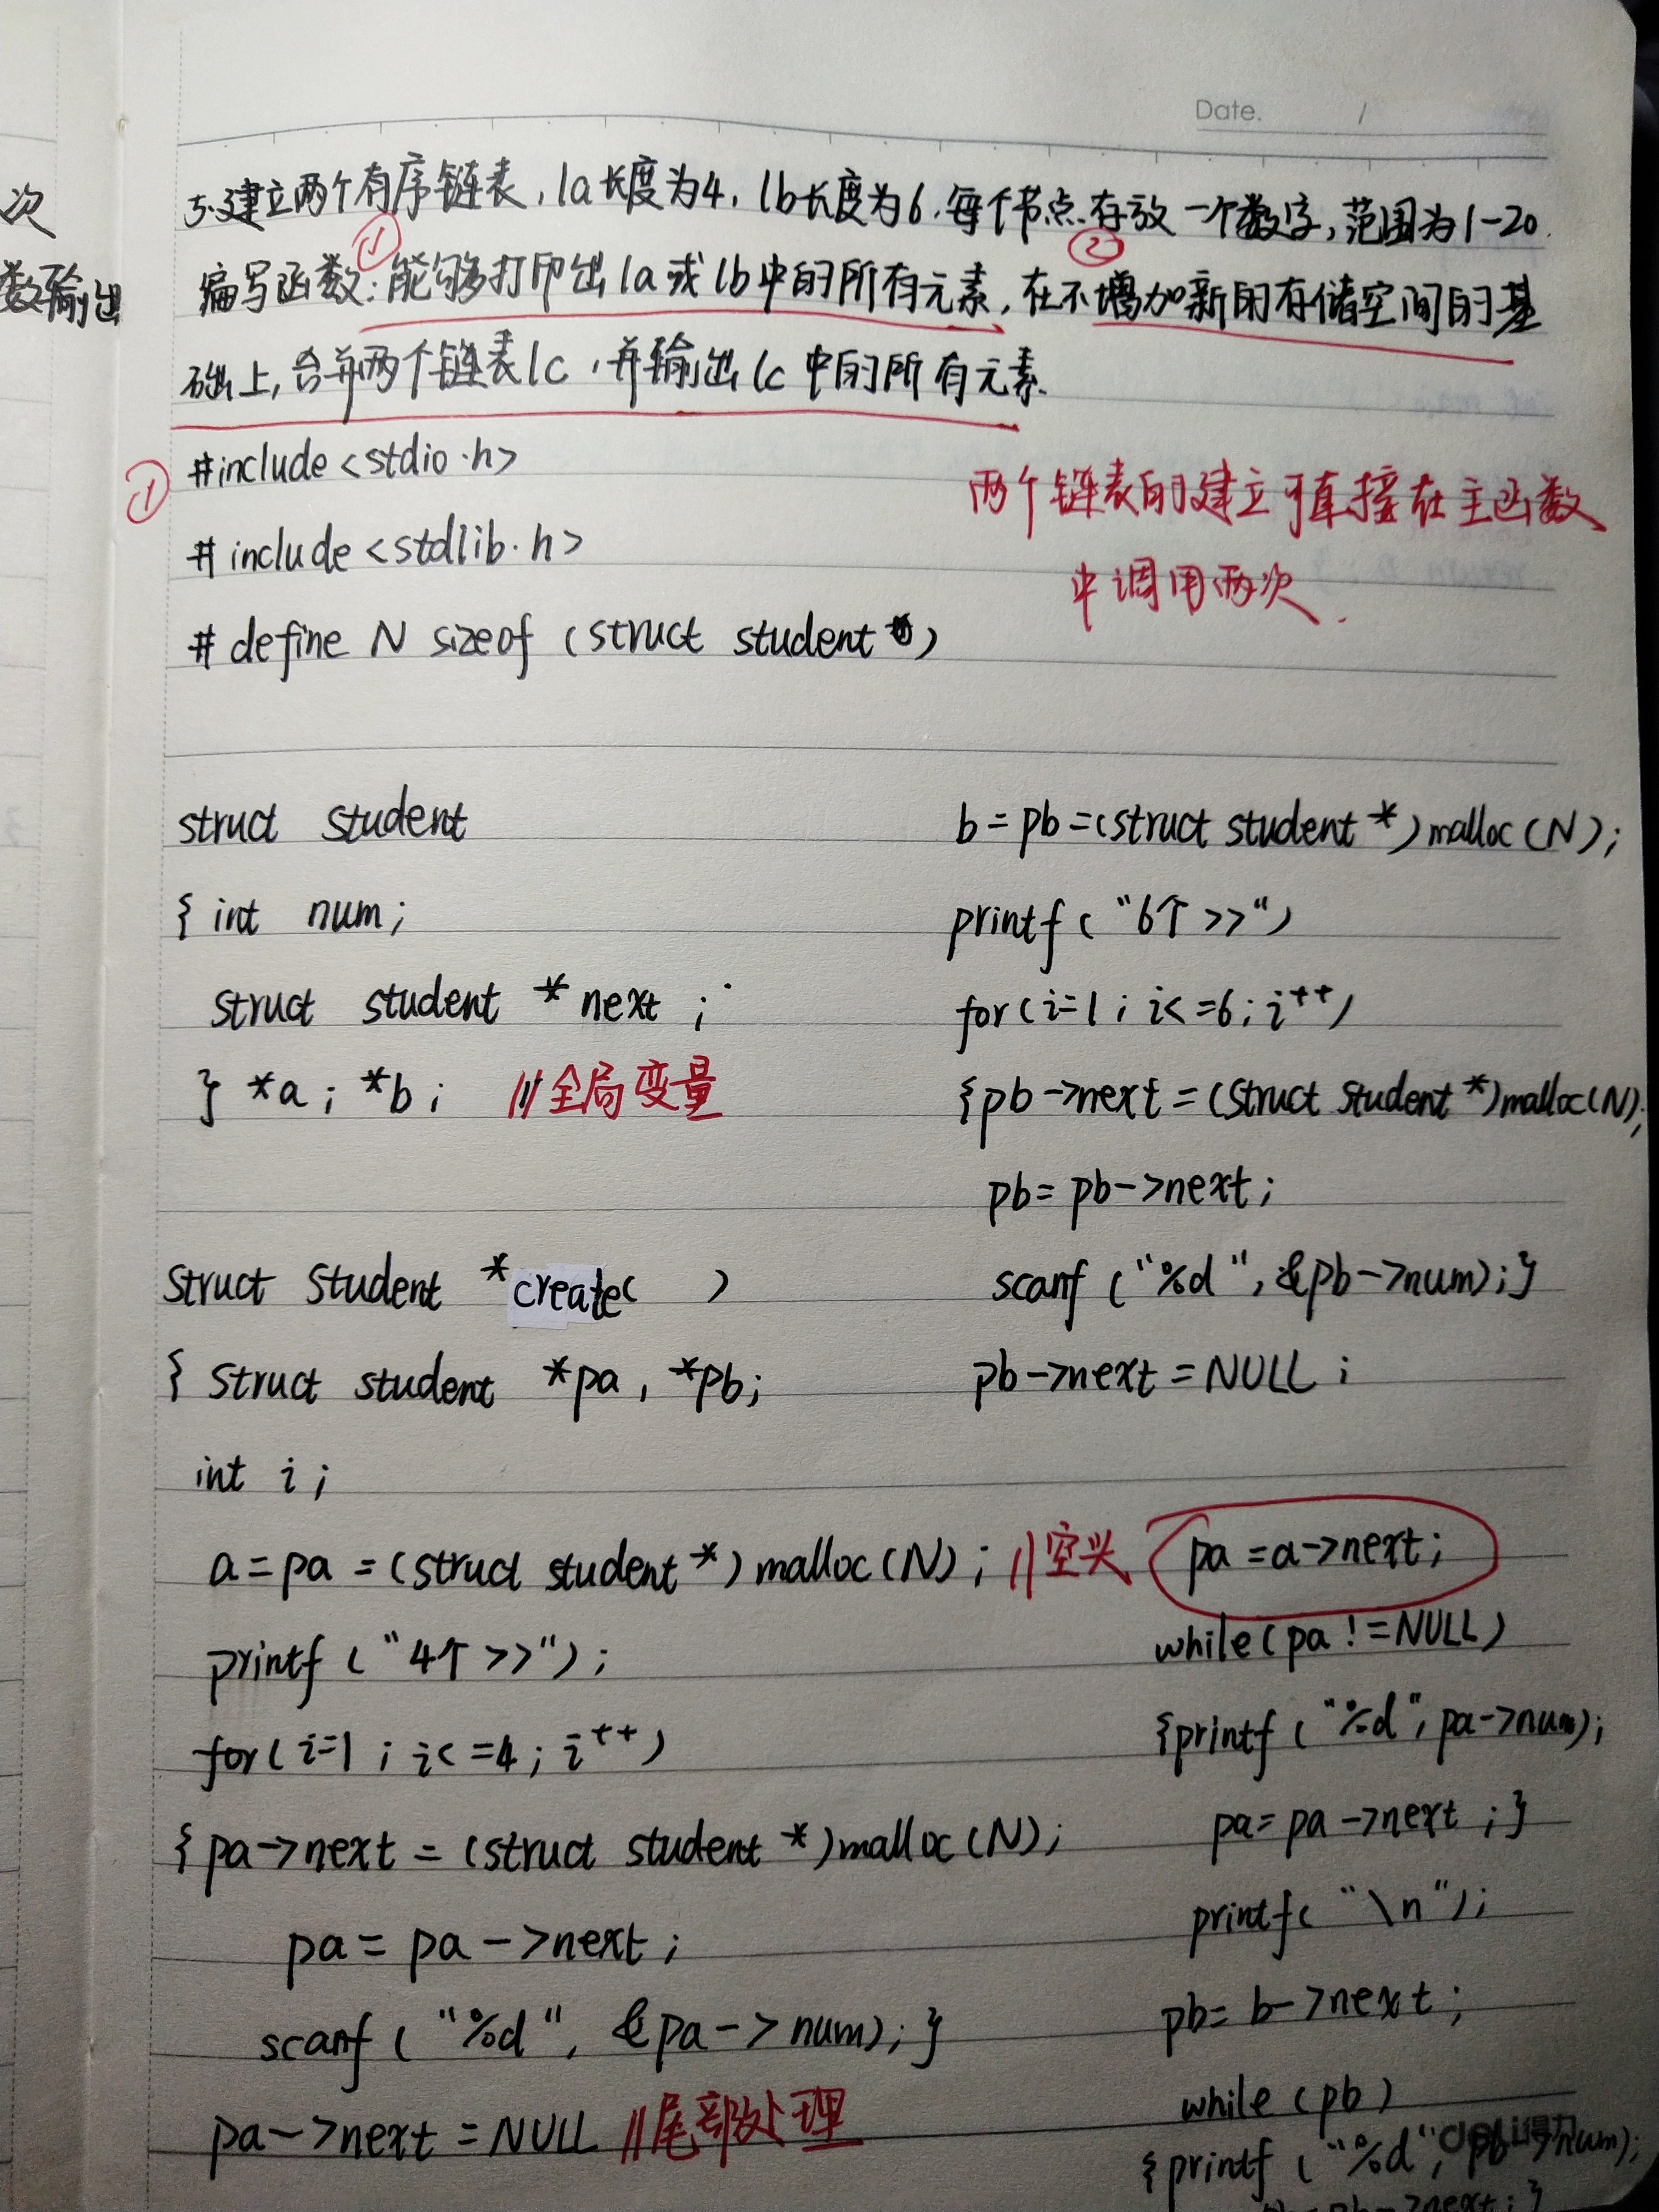 Date. /
次
数输出
5.建立两个有序链表，la长度为4，lb长度为6.每个节点存放一个数字，范围为1-20.
① ②
编写函数：能够打印出la或lb中的所有元素，在不增加新的存储空间的基
础上，合并两个链表lc，并输出lc中的所有元素.
① #include <stdio.h>
#include <stdlib.h>
#define N sizeof (struct student)
两个链表的建立可直接在主函数
中调用两次.
struct student
{ int num;
struct student *next ;
} *a ; *b ; //全局变量
struct student *create( )
{ struct student *pa, *pb;
int i ;
a = pa = (struct student *) malloc(N) ; //空头
printf ( "4个 >>" ) ;
for( i=1 ; i<=4 ; i++ )
{ pa->next = (struct student *)malloc(N);
pa = pa->next ;
scanf ( "%d", &pa->num); }
pa->next = NULL //尾部处理
b = pb = (struct student *) malloc (N) ;
printf ( "6个 >>" )
for( i=1 ; i<=6 ; i++ )
{pb->next = (struct student *)malloc(N);
pb = pb->next ;
scanf ( "%d", &pb->num) ; }
pb->next = NULL ;
pa = a->next ;
while (pa != NULL)
{printf ( "%d", pa->num);
pa = pa->next ; }
printf( "\n" ) ;
pb = b->next ;
while (pb)
{printf ( "%d", pb->num);
pb = pb->next ; }
deli得力